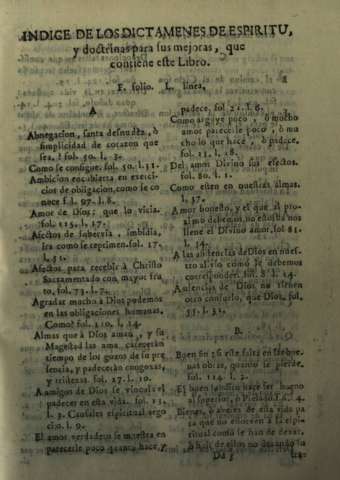 INDICE DE LOS DICTAMENES DE ESPIRITU,
y doctrinas para sus mejoras, que
contiene este Libro.
F. folio. L. linea,
A
Abnegacion, santa desnudèz, ò
simplicidad de corazon que
sea, fol. 30. l. 3.
Como se consigue. fol. 30. l. 31.
Ambicion encubierta en exerci-
cios de obligacion, como se co
noce f. 97. l. 8.
Amor de Dios; que lo vicia.
fol. 115. l. 17.
Afectos de sobervia, imbidia,
ira como se reprimen. fol. 17.
l. 31.
Afectos para recebir à Christo
Sacramentado con mayor fru
to, fol. 73. l. 7.
Agradar mucho à Dios podemos
en las obligaciones humanas.
Como? fol. 110. l. 14.
Almas que à Dios aman, y su
Magestad las ama, careceràn
tiempo de los gozos de su pre
sencia, y padeceràn congoxas,
y tristezas. fol. 27. l. 10.
A amigos de Dios se vincula el
padecer en esta vida. fol. 13.
l. 3. Causales espiritual, nego
cio. l. 9.
El amor verdadero se muestra en
parecerle poco quanto hace, y
padece, fol. 21. l. 8.
Como arguye poco, ò mucho
amor parecerle poco, ò mu
cho lo que hace, ò padece,
fol. 21. l. 18.
Del amor Divino sus efectos.
fol. 80. l. 1.
Como estèn en nuestras almas.
l. 37.
Amor honesto, y el que al pro-
ximo debemos, no estorba nos
llene el Divino amor, fol. 81.
l. 14.
A las ausencias de Dios en nues-
tro alivio como se debemos
corresponder. fol. 8. l. 14.
Ausencias de Dios no tienen
otro consuelo, que Dios, fol.
55. l. 32.
B.
Buen fin si este falta en las bue-
nas obras, quando se pierde.
fol. 114. l. 2.
El buen
al superior, ò Prelado f. 4.
Bienes, ò averes de esta vida pa
ra que no encierren à la espi-
ritual como se han de desear,
ò huìr de ellos no deseando
Dd 3